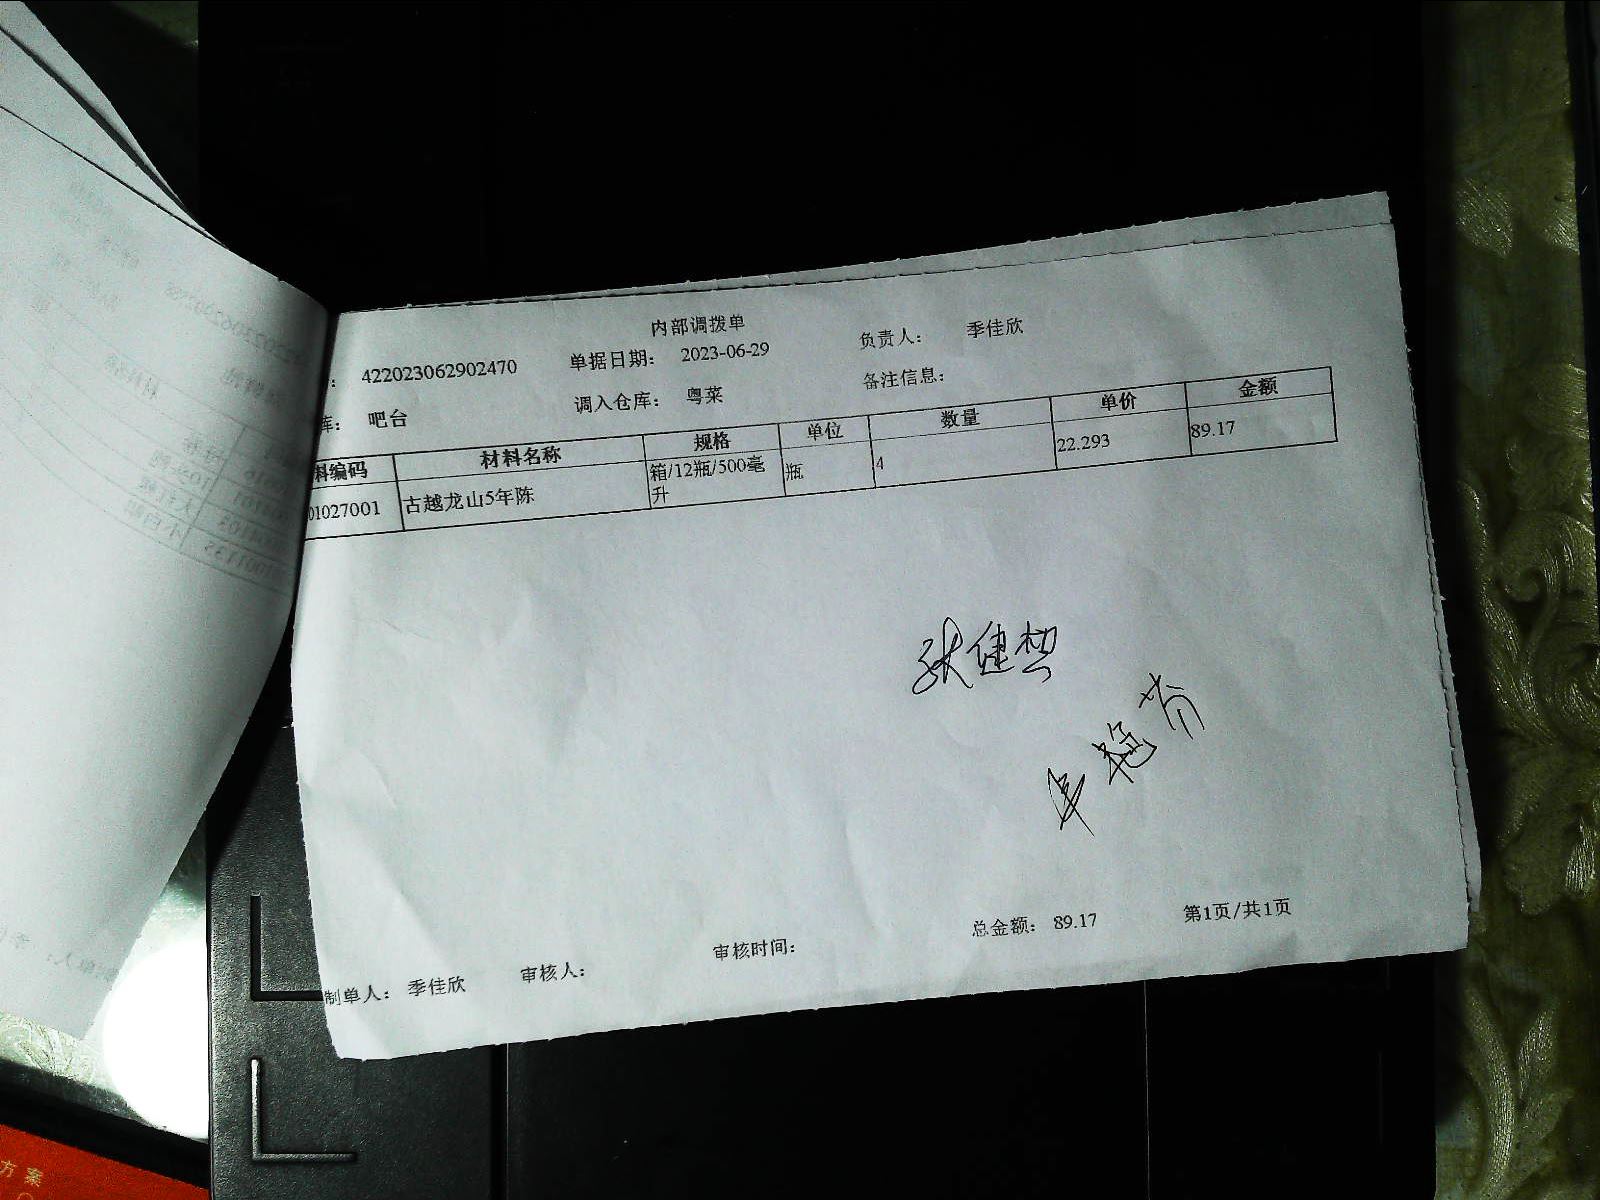 内部调拨单
： 422023062902470 单据日期： 2023-06-29 负责人： 季佳欣
库： 吧台 调入仓库： 粤菜 备注信息：
料编码 材料名称 规格 单位 数量 单价 金额
01027001 古越龙山5年陈 箱/12瓶/500毫 瓶 4 22.293 89.17
升
制单人： 季佳欣 审核人： 审核时间： 总金额： 89.17 第1页/共1页
方案